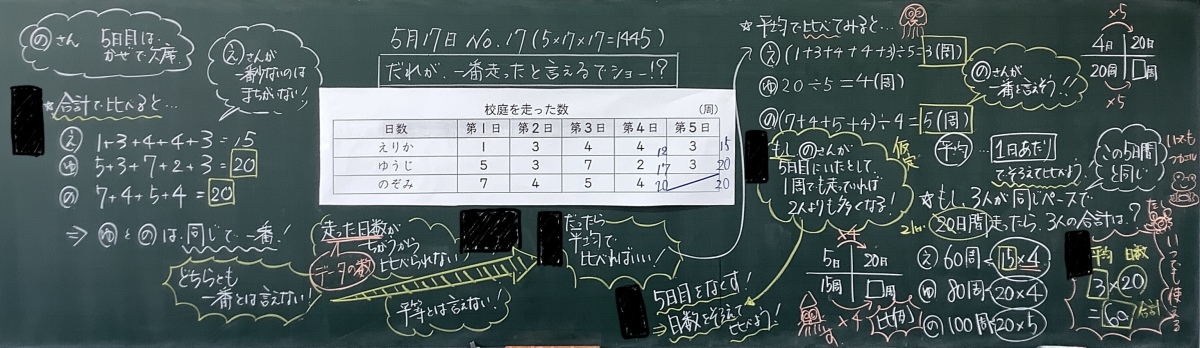 のさん 5日目は、
かぜで欠席。
えさんが
一番少ないのは
まちがいない!
☆合計で比べると…
え 1+3+4+4+3=15
ゆ 5+3+7+2+3=20
の 7+4+5+4=20
⇒ ゆとのは同じで一番!
どちらとも
一番とは言えない!
5月17日 No.17(5×17×17=1445)
だれが、一番走ったと言えるでショー!?
校庭を走った数 (周)
日数 第1日 第2日 第3日 第4日 第5日
えりか 1 3 4 4 3
12 15
ゆうじ 5 3 7 2 3
17 20
のぞみ 7 4 5 4
20 20
走った日数が
ちがうから
比べられない!
データの数
平等とは言えない!
だったら
平均で
比べればいい!
5日目をなくす!
⇒日数をそろえて
比べよう!
☆平均で比べてみると…
え (1+3+4+4+3)÷5=3(周)
ゆ 20÷5=4(周)
の (7+4+5+4)÷4=5(周)
のさんが
一番と言えそう!!
×5
4日 20日
20周 □周
×5
もしのさんが
5日目にいたとして、
1周でも走っていれば
2人よりも多くなる!
仮定
平均…1日あたり
でそろえて比べよう!
この5日間
と同じ
☆もし、3人が同じペースで
20日間走ったら、3人の合計は?
×4
5日 20日
15周 □周
×4
比例
え 60周 15×4
ゆ 80周 20×4
の 100周 20×5
平均 日数
3×20
=60 合計
いつでも使える